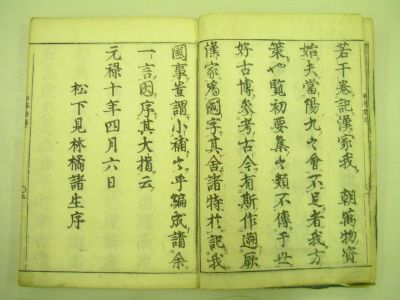 若干巻記漢家我　朝萬物資
始夫當陽九之會不足者我方
策也覽初要集之類不傳于世
好古博參考古今有斯作遡厥
漢家為國字其舍諸特於記我
國事豈謂小補之乎編成請余
一言因序其大指云
元禄十年四月六日
松下見林橘諸生序